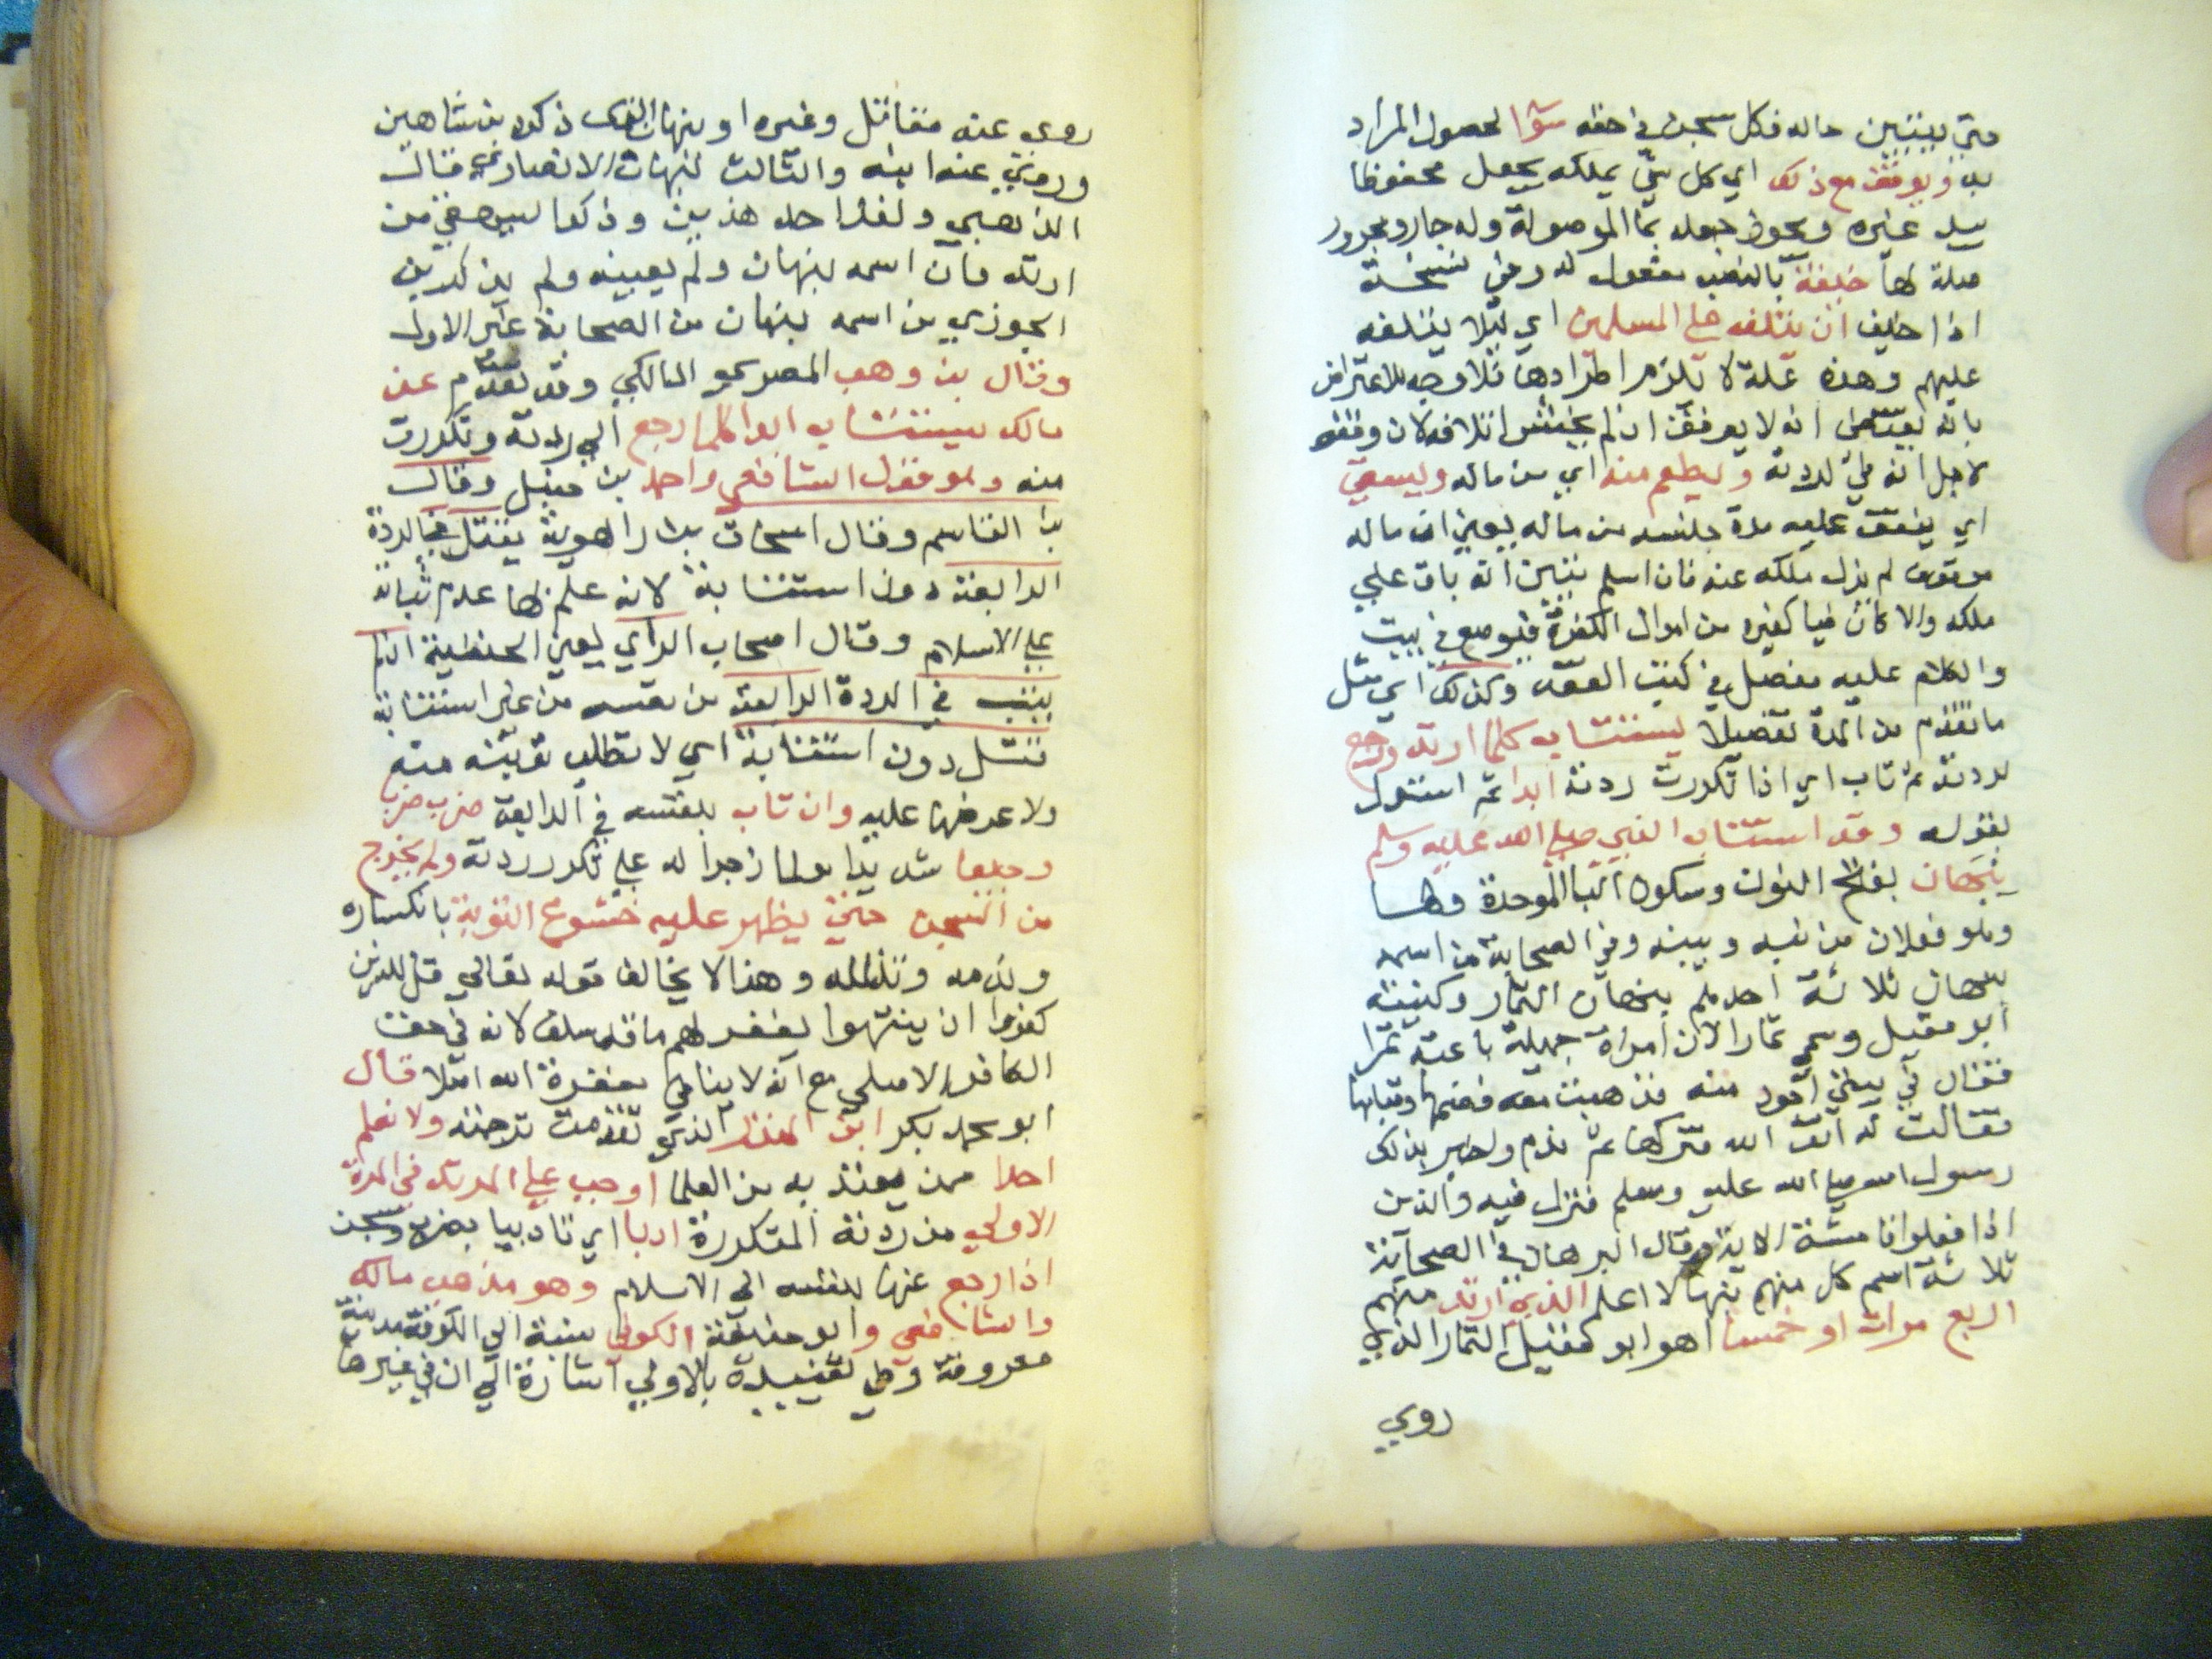 حتي يتبين حاله فكل سجن في حقه سوا لحصول المراد
به ويوقف مع ذلك اي كل شي يملكه يجعل محفوظا
بيد غيره ويجوز جعله بما الموصولة وله جار ومجرور
صلة لها خيفة بالنصب مفعول له وفي نسخة
اذا خيف ان يتلفه علي المسلمين اي ليلا يتلفه
عليهم وهذه علة لا تلزم اطرادها فلا وجه للاعتراض
بانه يقتضي انه لا يوقف ان لم يخش اتلافه لان وقفه
لاجل انه في لردته ويطعم منه اي من ماله ويسقي
اي ينفق عليه مدة جلسه من ماله يعني ان ماله
موقوف لم يزل ملكه عنه فان اسلم يتبين انه باق علي
ملكه والا كان فيا كغيره من اموال الكفرة فيوضع في بيت
والكلام عليه مفصل في كتب الفقه وكذلك اي مثل
ما تقدم من المدة تفصيلا يستتاب كلما ارتد ورجع
لردته ثم تاب اي اذا تكررت ردته ابدا ثم استدل
بقوله وقد استتاب النبي صلي الله عليه وسلم
نبهان بفتح النون وسكون البا الموحدة وها
وهو فعلان من نبه وبينه وفي الصحابة من اسمه
نبهان ثلاثة احدهم نبهان التمار وكنيته
ابو مقبل وسمي تمارا لان امراة جميلة باعته تمرا
فقال في بيتي اجود منه فذهبت معه فضمها وقبلها
فقالت له اتق الله فتركها ثم ندم واخبر بذلك
رسول الله صلي الله عليه وسلم فنزل فيه والذين
اذا فعلوا فاحشة الاية وقال البرهان في الصحابة
ثلاثة اسم كل منهم نبهان لا اعلم الذي ارتد منهم
اربع مرات او خمسا اهو ابو مقبل التمار الذي
روي
روي عنه مقاتل وغيره او نبهان ذكره بن شاهين
وروي عنه ابنه والثالث نبهان الانصاري قال
الذهبي ولعله احد هذين وذكوا لبيهقي من
ارتد فان اسمه نبهان ولم يعينه ولم يذكر بن
الجوزي من اسمه نبهان من الصحابة غير الاول
وقال بن وهب المصري هو المالكي وقد تقدم عن
مالك يستتاب ابدا كلما رجع الي ردته وتكررت
منه وهو قول الشافعي واحمد بن حنبل وقاله
بن القاسم وقال اسحاق بن راهويه يقتل في الردة
الرابعة دون استتابة لانه علم بها عدم ثباته
علي الاسلام وقال اصحاب الراي يعني الحنفية ان لم
يتب في الردة الرابعة من نفسه من غير استتابة
قتل دون استتابة اي لا تطلب توبته منه
ولا عرضها عليه وان تاب بنفسه في الرابعة ضرب ضربا
وجيعا شديدا مولما زاجرا له علي تكرر ردته ولم يخرج
من السجن حتي يظهر عليه خشوع التوبة بانكساره
وندمه وتذلله وهذا لا يخالف قوله تعالي قل للذين
كفروا ان ينتهوا يغفر لهم ما قد سلف لانه في حق
الكافر الاصلي مع انه لا ينافي مغفرة الله اصلا قال
ابو محمد بكر ابن المنذر الذي تقدمت ترجمته ولا نعلم
احدا ممن يعتد به من العلما اوجب علي المرتد في المرة
الاولي من ردته المتكررة ادبا اي تاديبا بضرب وسجن
اذا رجع عنها بنفسه الي الاسلام وهو مذهب مالك
والشافعي وابو حنيفة الكوفي نسبة الي الكوفة مدينة
معروفة وفي تقييده بالاولي اشارة الي ان في غيرها